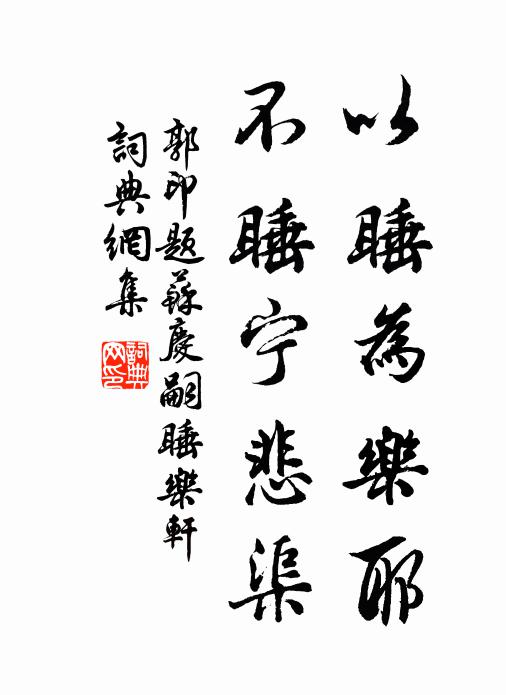 以睡為樂耶
不睡宁悲渠
郭印題蘇慶嗣睡樂軒
詞典網集
詞典网印